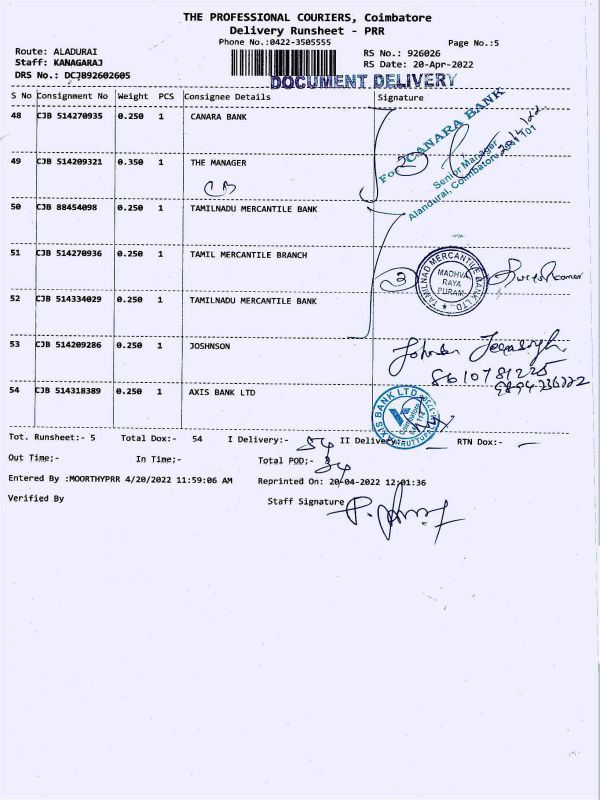 THE PROFESSIONAL COURIERS, Coimbatore
Delivery Runsheet - PRR
Phone No.:0422-3505555 Page No.:5
Route: ALADURAI RS No.: 926026
Staff: KANAGARAJ RS Date: 20-Apr-2022
DRS No.: DCJB92602605
DOCUMENT DELIVERY
S No Consignment No Weight PCS Consignee Details Signature
48 CJB 514270935 0.250 1 CANARA BANK
For CANARA BANK
Senior Manager
Alandurai, Coimbatore
49 CJB 514209321 0.350 1 THE MANAGER
CB
50 CJB 88454098 0.250 1 TAMILNADU MERCANTILE BANK
51 CJB 514270936 0.250 1 TAMIL MERCANTILE BRANCH
TAMILNAD MERCANTILE BANK LTD.
MADHVA
RAYA
PURAM
3
52 CJB 514334029 0.250 1 TAMILNADU MERCANTILE BANK
53 CJB 514209286 0.250 1 JOSHNSON
54 CJB 514318389 0.250 1 AXIS BANK LTD
AXIS BANK LTD
Tot. Runsheet:- 5 Total Dox:- 54 I Delivery:- 54 II Delivery:- — RTN Dox:- —
Out Time;- In Time;- Total POD:- 34
Entered By :MOORTHYPRR 4/20/2022 11:59:06 AM Reprinted On: 20-04-2022 12:01:36
Verified By Staff Signature